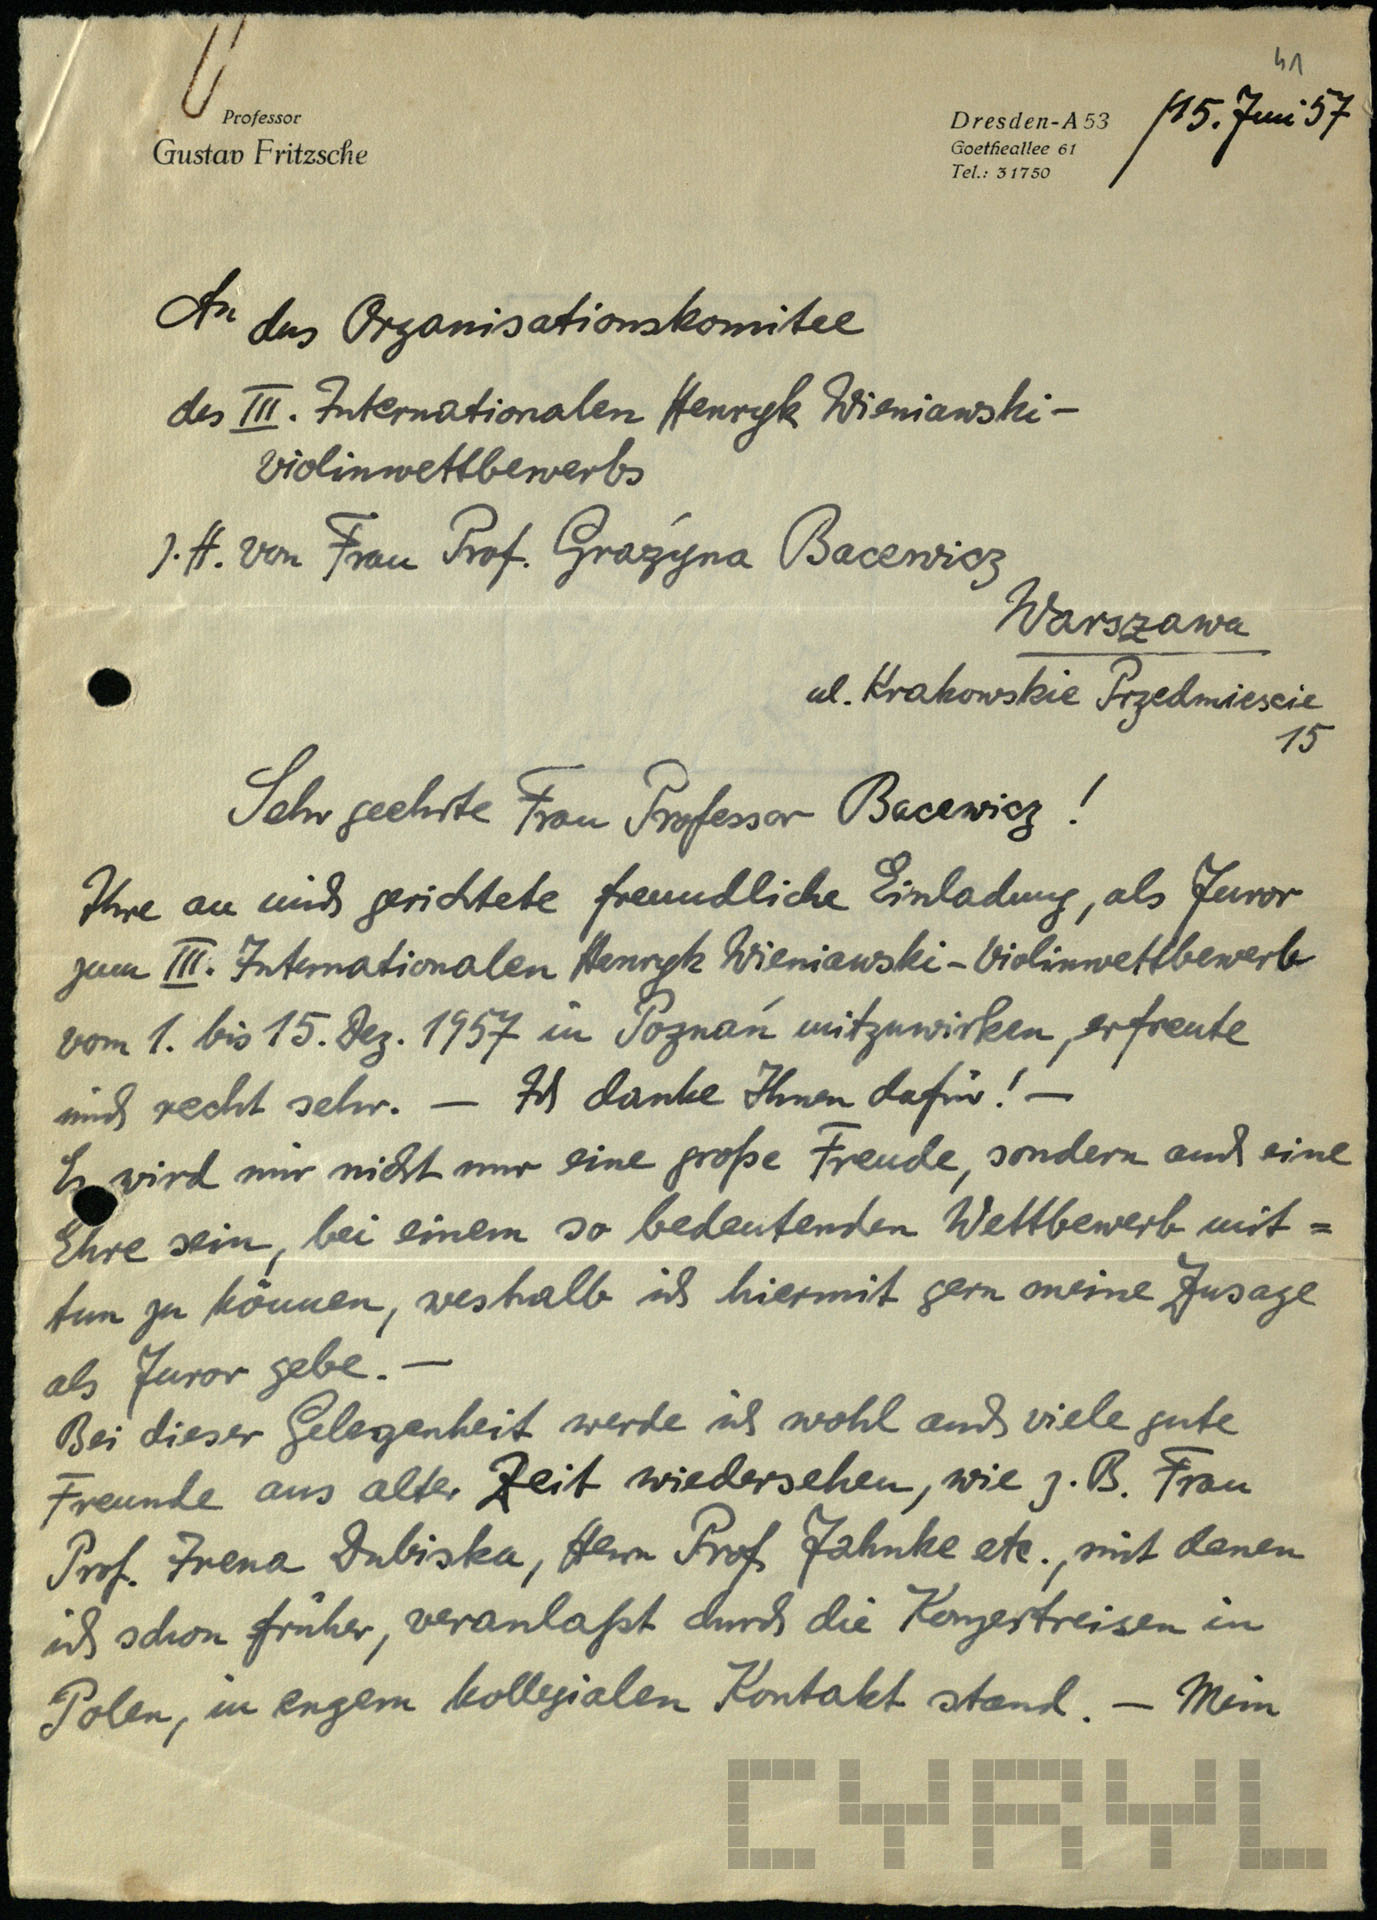 41
Professor
Gustav Fritzsche
Dresden-A 53
Goetheallee 61
Tel.: 31750
15. Juni 57
An das Organisationskomitee
des III. Internationalen Henryk Wieniawski-
Violinwettbewerbs
z. H. von Frau Prof. Grażyna Bacewicz
Warszawa
ul. Krakowskie Przedmiescie
15
Sehr geehrte Frau Professor Bacewicz!
Ihre an mich gerichtete freundliche Einladung, als Juror
zum III. Internationalen Henryk Wieniawski-Violinwettbewerb
vom 1. bis 15. Dez. 1957 in Poznań mitzuwirken, erfreute
mich recht sehr. — Ich danke Ihnen dafür! —
Es wird mir nicht nur eine große Freude, sondern auch eine
Ehre sein, bei einem so bedeutenden Wettbewerb mit=
tun zu können, weshalb ich hiermit gern meine Zusage
als Juror gebe. —
Bei dieser Gelegenheit werde ich wohl auch viele gute
Freunde aus alter Zeit wiedersehen, wie z. B. Frau
Prof. Irena Dubiska, Herrn Prof. Jahnke etc., mit denen
ich schon früher, veranlaßt durch die Konzertreisen in
Polen, in engem kollegialen Kontakt stand. — Mein
CYRYL